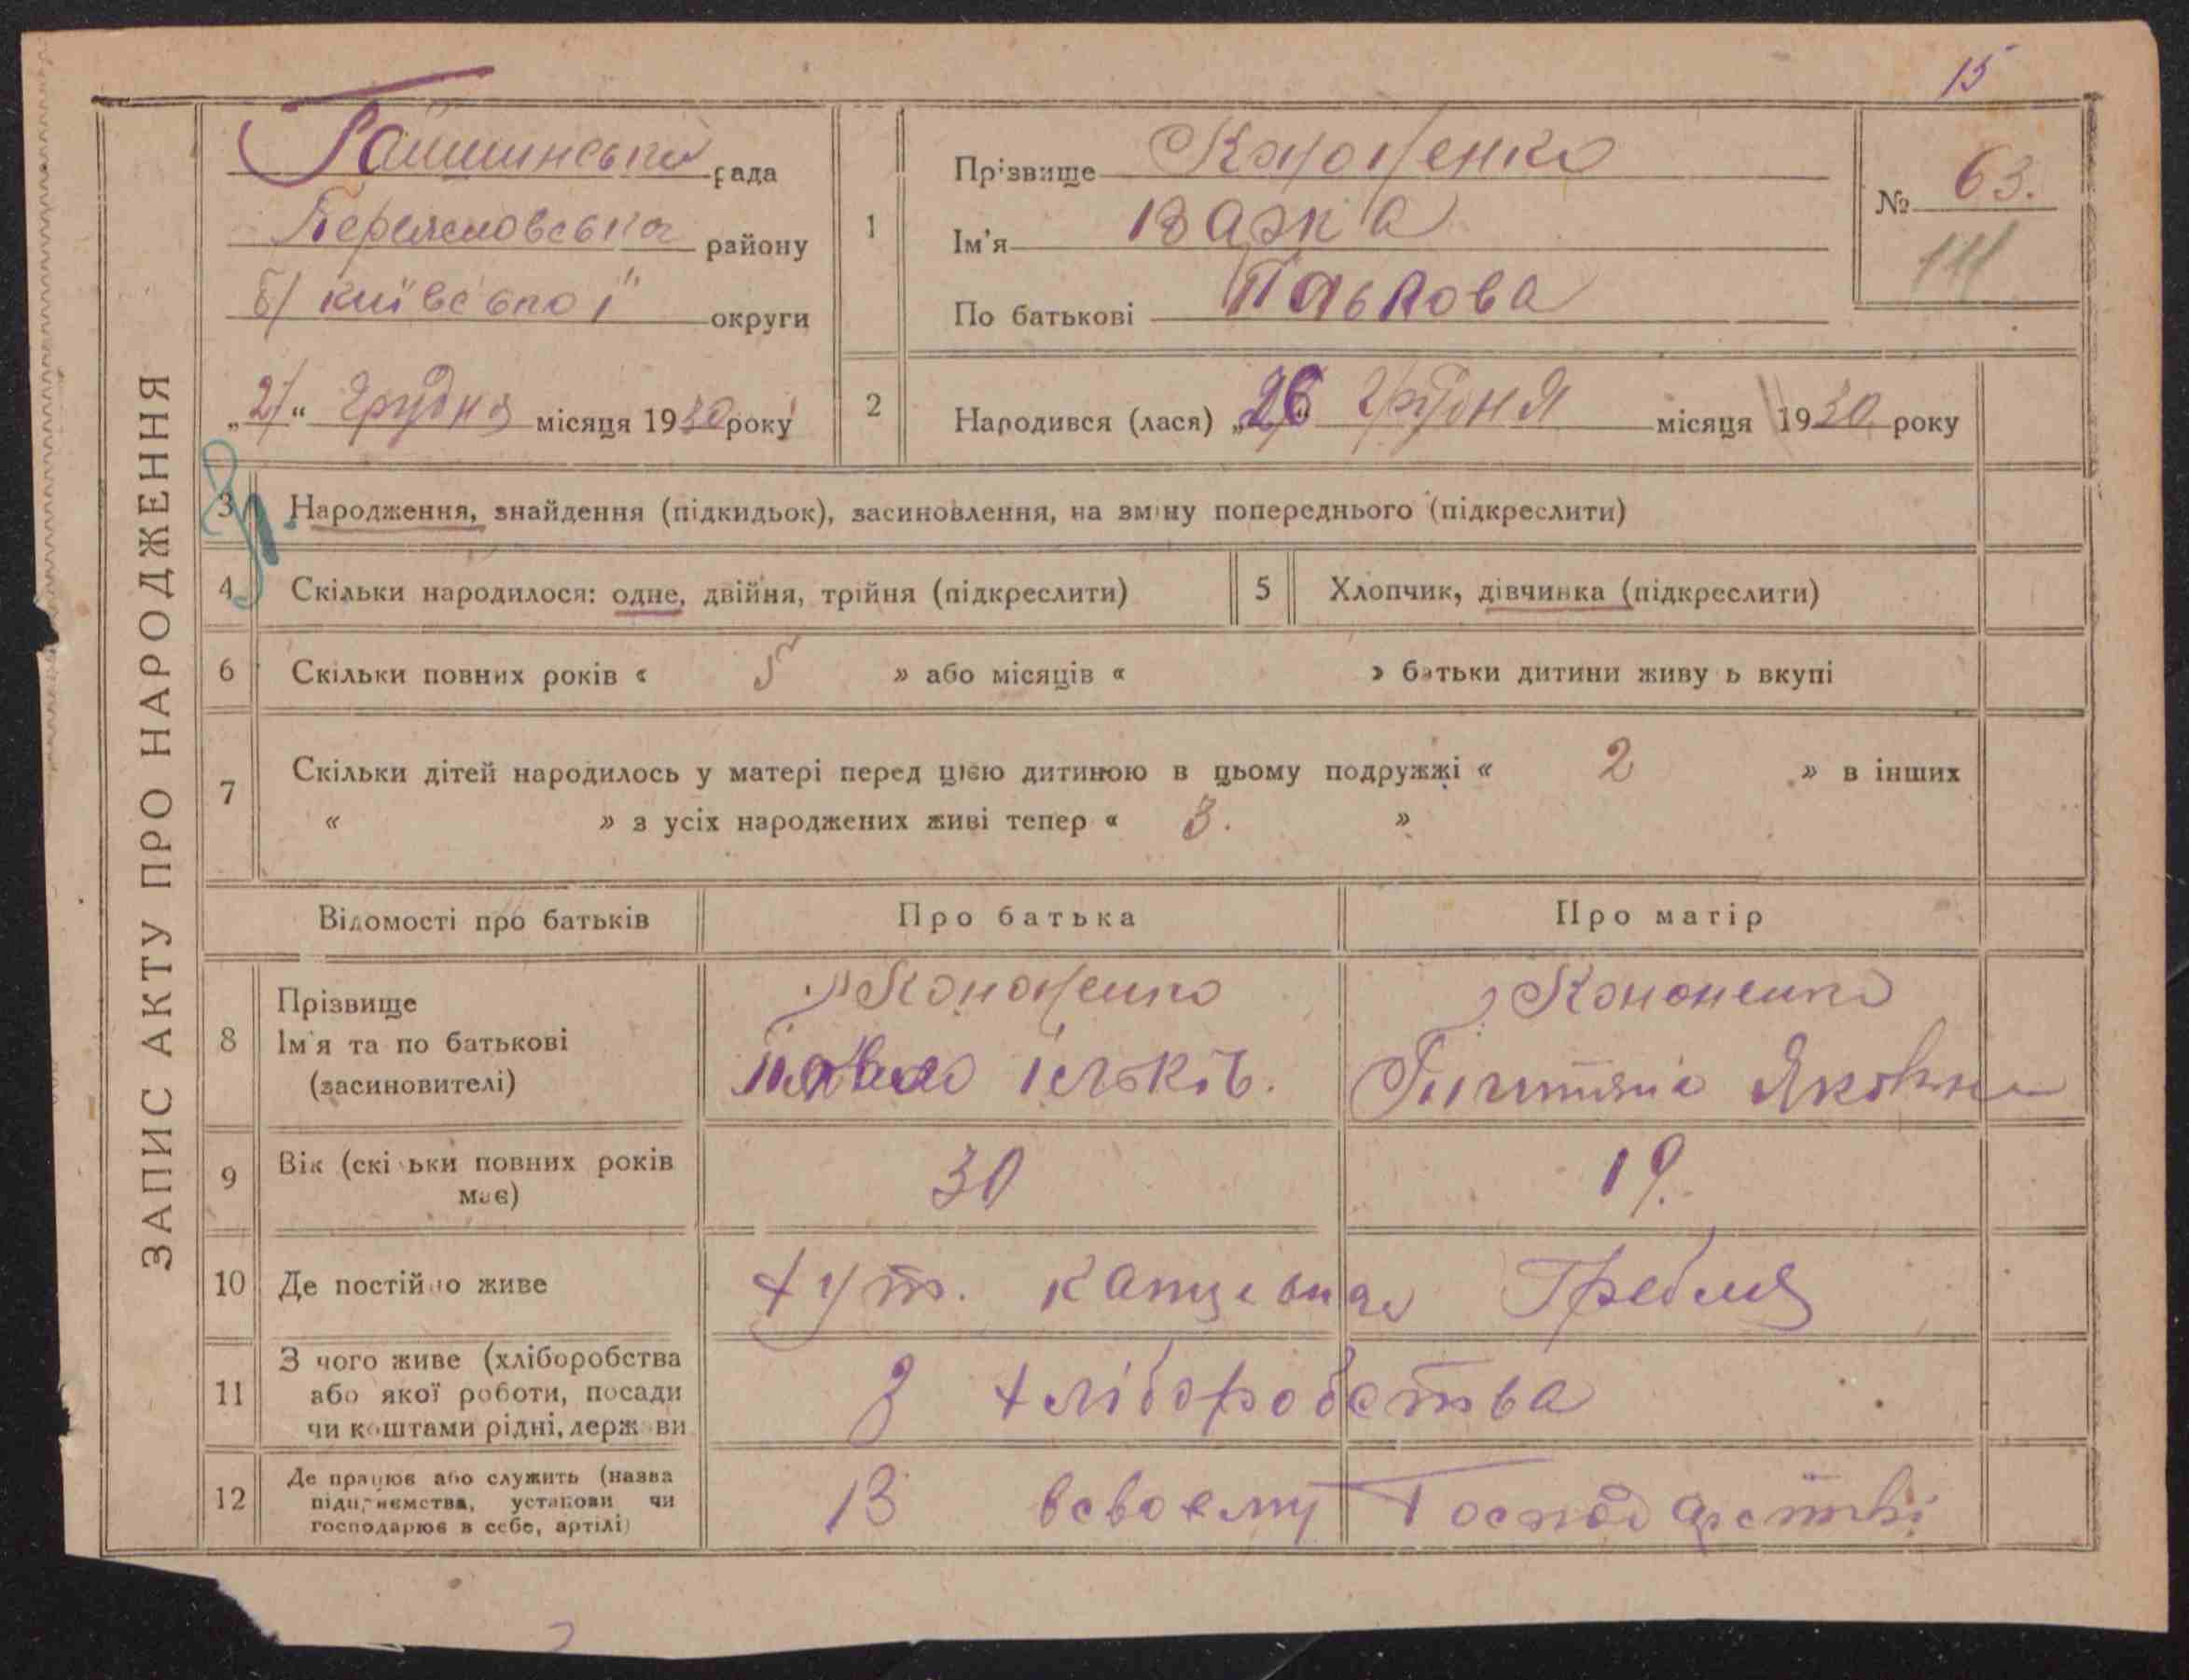 15
ЗАПИС АКТУ ПРО НАРОДЖЕННЯ
Гайшинська рада
району
б/ київської округи
„27“ Грудня місяця 1930 року
1
Прізвище Кононенко
Ім'я
По батькові Павлова
№ 63.
2
Народився (лася) „26 Грудня місяця 1930 року
3
Народження, знайдення (підкидьок), засиновлення, на зміну попереднього (підкреслити)
4
Скільки народилося: одне, двійня, трійня (підкреслити)
5
Хлопчик, дівчинка (підкреслити)
6
Скільки повних років « 5 » або місяців « » батьки дитини живуть вкупі
7
Скільки дітей народилось у матері перед цією дитиною в цьому подружжі « 2 » в інших
« » з усіх народжених живі тепер « 3. »
Відомості про батьків
Про батька
Про матір
8
Прізвище
Ім'я та по батькові
(засиновителі)
Кононенко
Павло Ільків.
Кононенко
Яковна
9
Вік (скільки повних років
має)
30
19.
10
Де постійно живе
хут. Гребля
11
З чого живе (хліборобства
або якої роботи, посади
чи коштами рідні, держави
З хліборобства
12
Де працює або служить (назва
підприємства, установи чи
господарює в себе, артілі)
В всвоему Господарстві